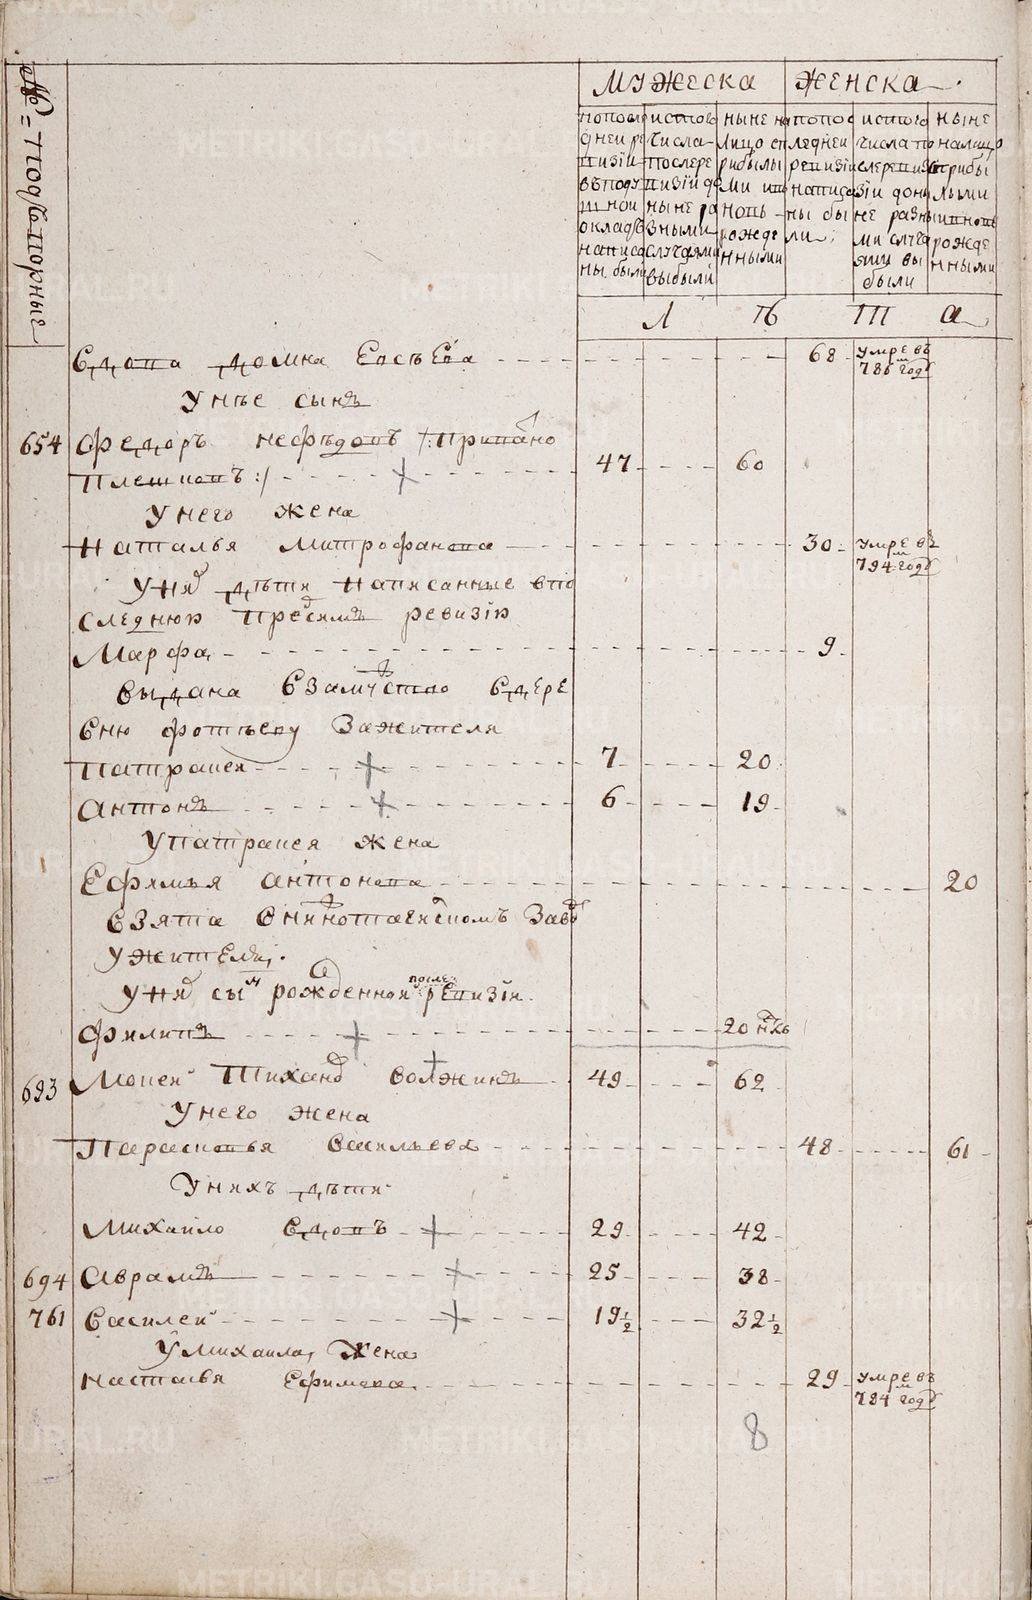 № Подворные
МУЖЕСКА
ЖЕНСКА
по послѣ
дней ре
визіи
в подуш
ном
окладѣ
написа
ны были
ис того
числа
после ре
визіи до
ныне ра
зными
случаями
выбыли
ныне на
лицо с п
рибылы
ми и в
новь
рожде
нными
по пос
ледней
ревизіи
написа
ны бы
ли
ис того
числа по
сле реви
зіи до ны
не разны
ми случа
ями вы
были
ныне
на лицо
с прибы
лыми
и вновь
рожде
нными
Л Ѣ Т А
Вдова Домна Евсѣева 68 умре въ 786м году
У нѣе сынъ
654 Федоръ Нефѣдовъ /:Припано
Плешковъ:/ 47 60
У него жена
Наталья Митрофанова 30 умре въ 794м году
У них дѣти написанные в по
следнюю пред сямъ ревизію
Марфа 9
выдана в замужство в дере
вню Фотѣеву за жителя
Патракея 7 20
Антонъ 6 19
У Патракея жена
Ефимья Антонова 20
взята в Нижнотагилском заво
у жителя.
У них сын рожденной после ревизіи.
Филипъ 20 нѣдъ
693 Мокей Тиханов Волжинъ 49 62
У него жена
Парасковья Васильева 48 61
У нихъ дѣти
Михайло вдовъ 29 42
694 Аврамъ 25 38
761 Василей 19½ 32½
У Михаила жена
Настасья Ефимова 29 умре въ 794м году
8